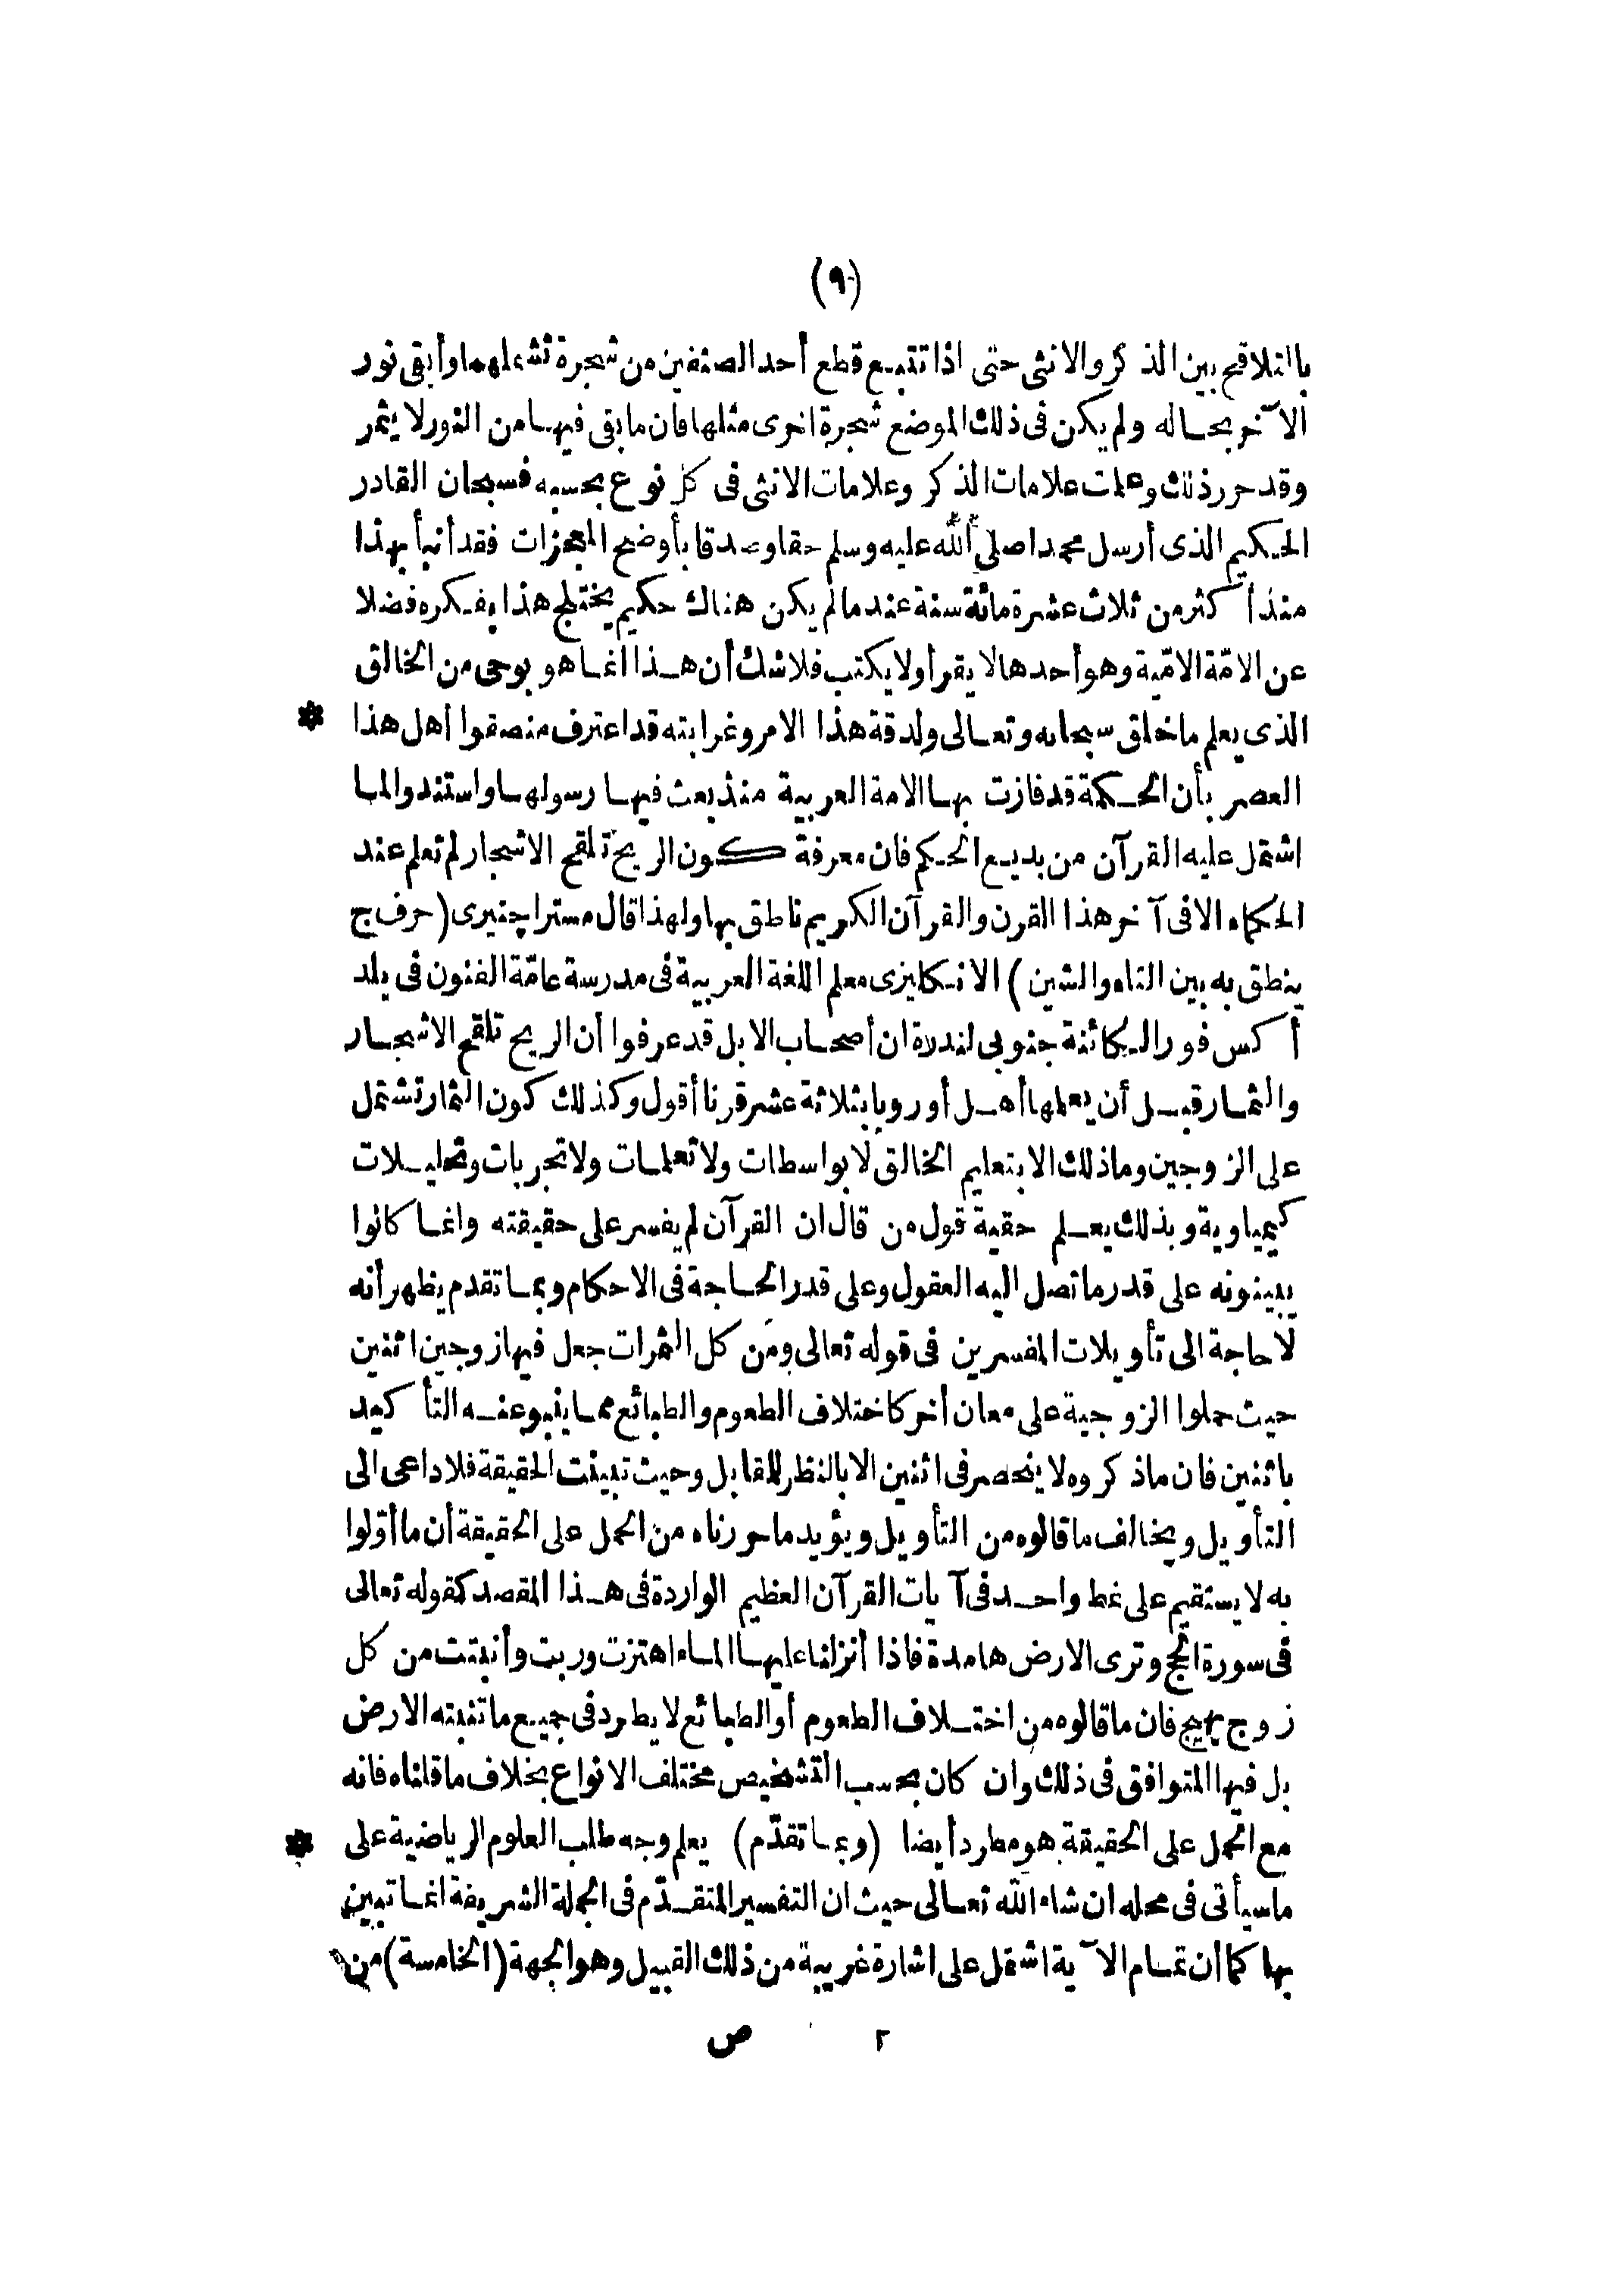 (٩)
بالتلاقح بين الذكر والانثى حتى اذا تتبع قطع أحد الصنفين من شجرة تشملهما وأبقى نور
الآخر بحاله ولم يكن فى ذلك الموضع شجرة اخرى مثلها فان ما بقى فيها من النور لا يثمر
وقد حرر ذلك وعلمت علامات الذكر وعلامات الانثى فى كل نوع بحسبه فسبحان القادر
الحكيم الذى أرسل محمدا صلى الله عليه وسلم حقا وصدقا بأوضح المعجزات فقد أنبأ بهذا
منذ أكثر من ثلاث عشرة مائة سنة عند ما لم يكن هناك حكيم يختلج هذا بفكره فضلا
عن الامّة الامّية وهو أحدها لا يقرأ ولا يكتب فلا شك أن هذا انما هو بوحى من الخالق
الذى يعلم ما خلق سبحانه وتعالى ولدقة هذا الامر وغرابته قد اعترف منصفوا أهل هذا *
العصر بأن الحكمة قد فازت بها الامة العربية منذ بعث فيها رسولها واستندوا لما
اشتمل عليه القرآن من بديع الحكم فان معرفة كون الريح تلقح الاشجار لم تعلم عند
الحكماء الا فى آخر هذا القرن والقرآن الكريم ناطق بها ولهذا قال مستر اچنيرى (حرف ج
ينطق به بين التاء والشين) الانكليزى معلم اللغة العربية فى مدرسة عامّة الفنون فى بلد
أكس فور الكائنة جنوبى لندرة ان أصحاب الابل قد عرفوا أن الريح تلقح الاشجار
والثمار قبل أن يعلمها أهل أوروبا بثلاثة عشر قرنا أقول وكذلك كون الثمار تشتمل
على الزوجين وما ذلك الا بتعليم الخالق لا بواسطات ولا تعلمات ولا تجربات وتحليلات
كيمياوية وبذلك يعلم حقية قول من قال ان القرآن لم يفسر على حقيقته وانما كانوا
يبينونه على قدر ما تصل اليه العقول وعلى قدر الحاجة فى الاحكام وبما تقدم يظهر أنه
لا حاجة الى تأويلات المفسرين فى قوله تعالى ومن كل الثمرات جعل فيها زوجين اثنين
حيث حملوا الزوجية على معان أخر كاختلاف الطعوم والطبائع مما ينبو عنه التأكيد
باثنين فان ما ذكروه لا ينحصر فى اثنين الا بالنظر للمقابل وحيث تبينت الحقيقة فلا داعى الى
التأويل ويخالف ما قالوه من التأويل ويؤيد ما حررناه من الحمل على الحقيقة أن ما أوّلوا
به لا يستقيم على نمط واحد فى آيات القرآن العظيم الواردة فى هذا المقصد كقوله تعالى
فى سورة الحج وترى الارض هامدة فاذا أنزلنا عليها الماء اهتزت وربت وأنبتت من كل
زوج بهيج فان ما قالوه من اختلاف الطعوم أو الطبائع لا يطرد فى جميع ما تنبته الارض
بل فيها المتوافق فى ذلك وان كان بحسب التشخيص مختلف الانواع بخلاف ما قلناه فانه
مع الحمل على الحقيقة هو مطرد أيضا (وبما تقدّم) يعلم وجه طلب العلوم الرياضية على *
ما سيأتى فى محله ان شاء الله تعالى حيث ان التفسير المتقدّم فى الجملة الشريفة انما تبين
بها كما أن تمام الآية اشتمل على اشارة غريبة من ذلك القبيل وهو الجهة (الخامسة) من
٢ ص